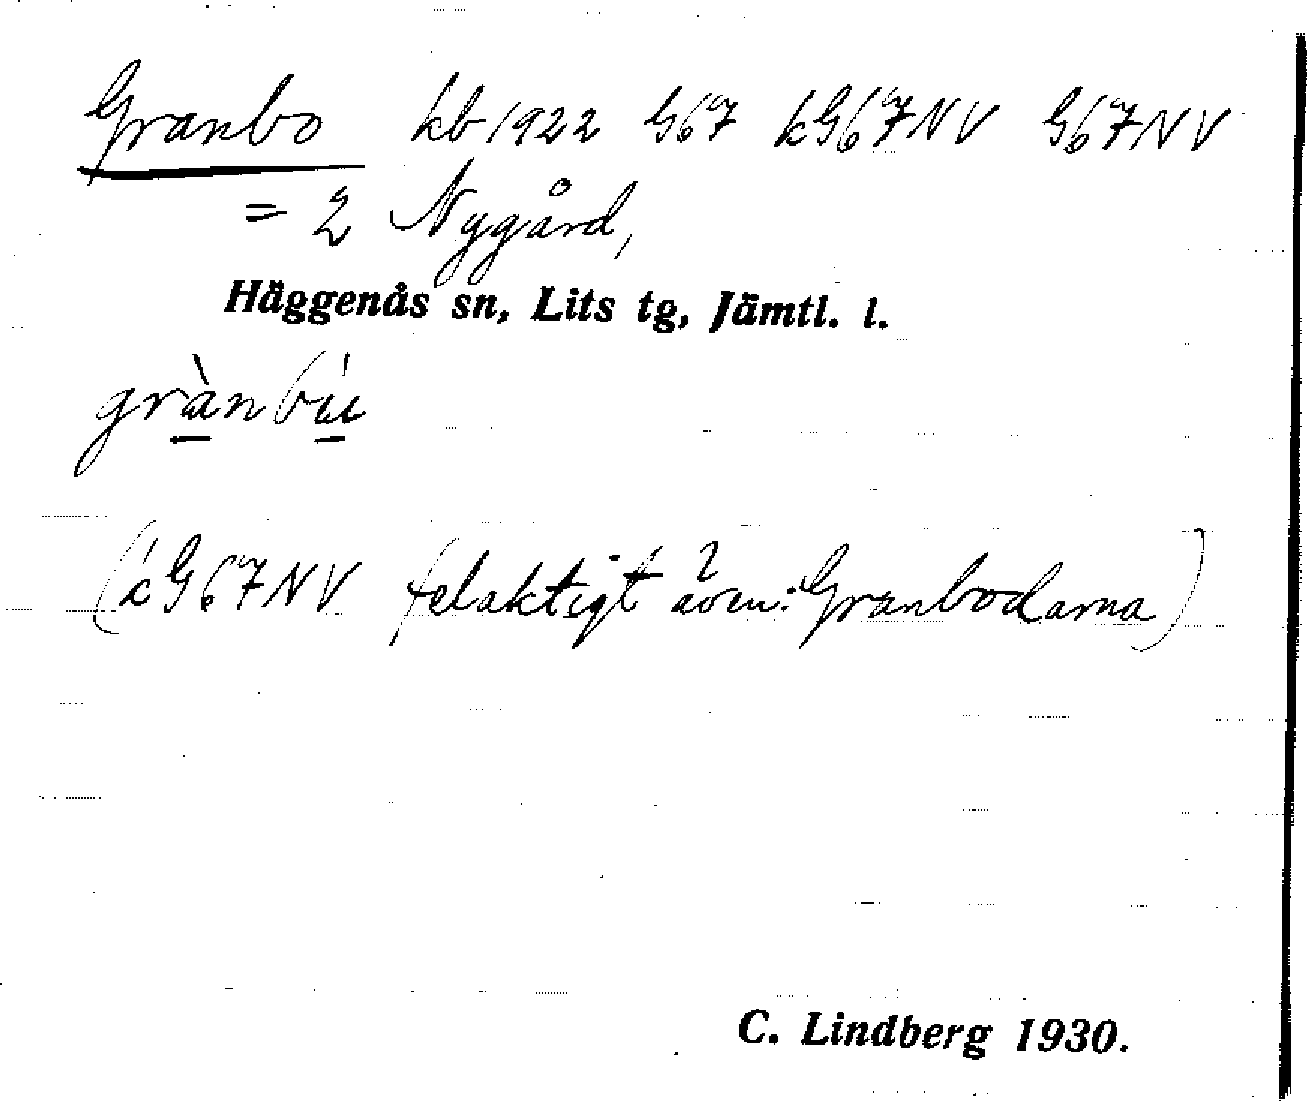 Granbo kb 1922 G67 kG67NV G67NV
= 2 Nygård,
Häggenås sn, Lits tg, Jämtl. l.
grànbú
(i G67NV felaktigt som: Granbodarna)
C. Lindberg 1930.